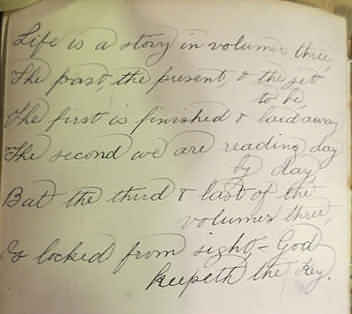 Life is a story in volumes three,
The past, the present, & the yet
to be,
The first is finished & laid away
The second we are reading day
by day
But the third & last of the
volumes three,
Is locked from sight - God
keepeth the key.